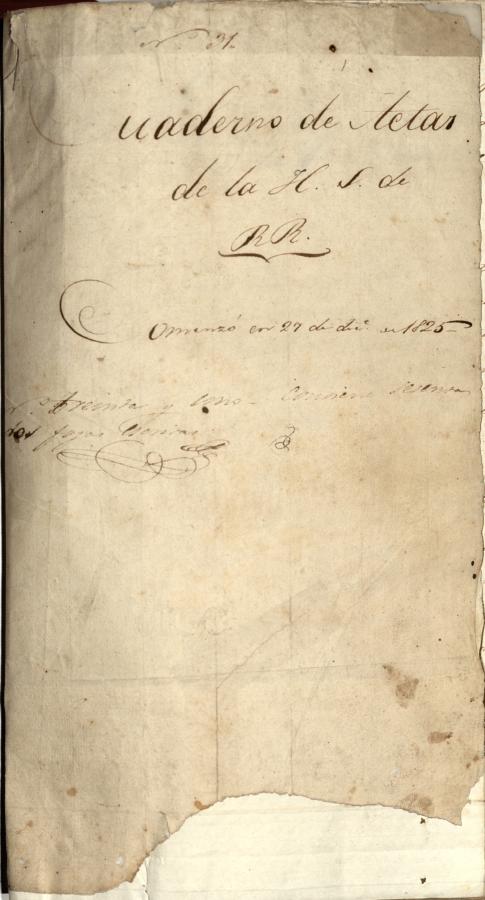 N. 31.
Cuaderno de Actas
de la H. S. de
RR.
Comenzó en 27 de dic.e de 1825
N.o treinta y uno - Contiene sesenta
dos fojas